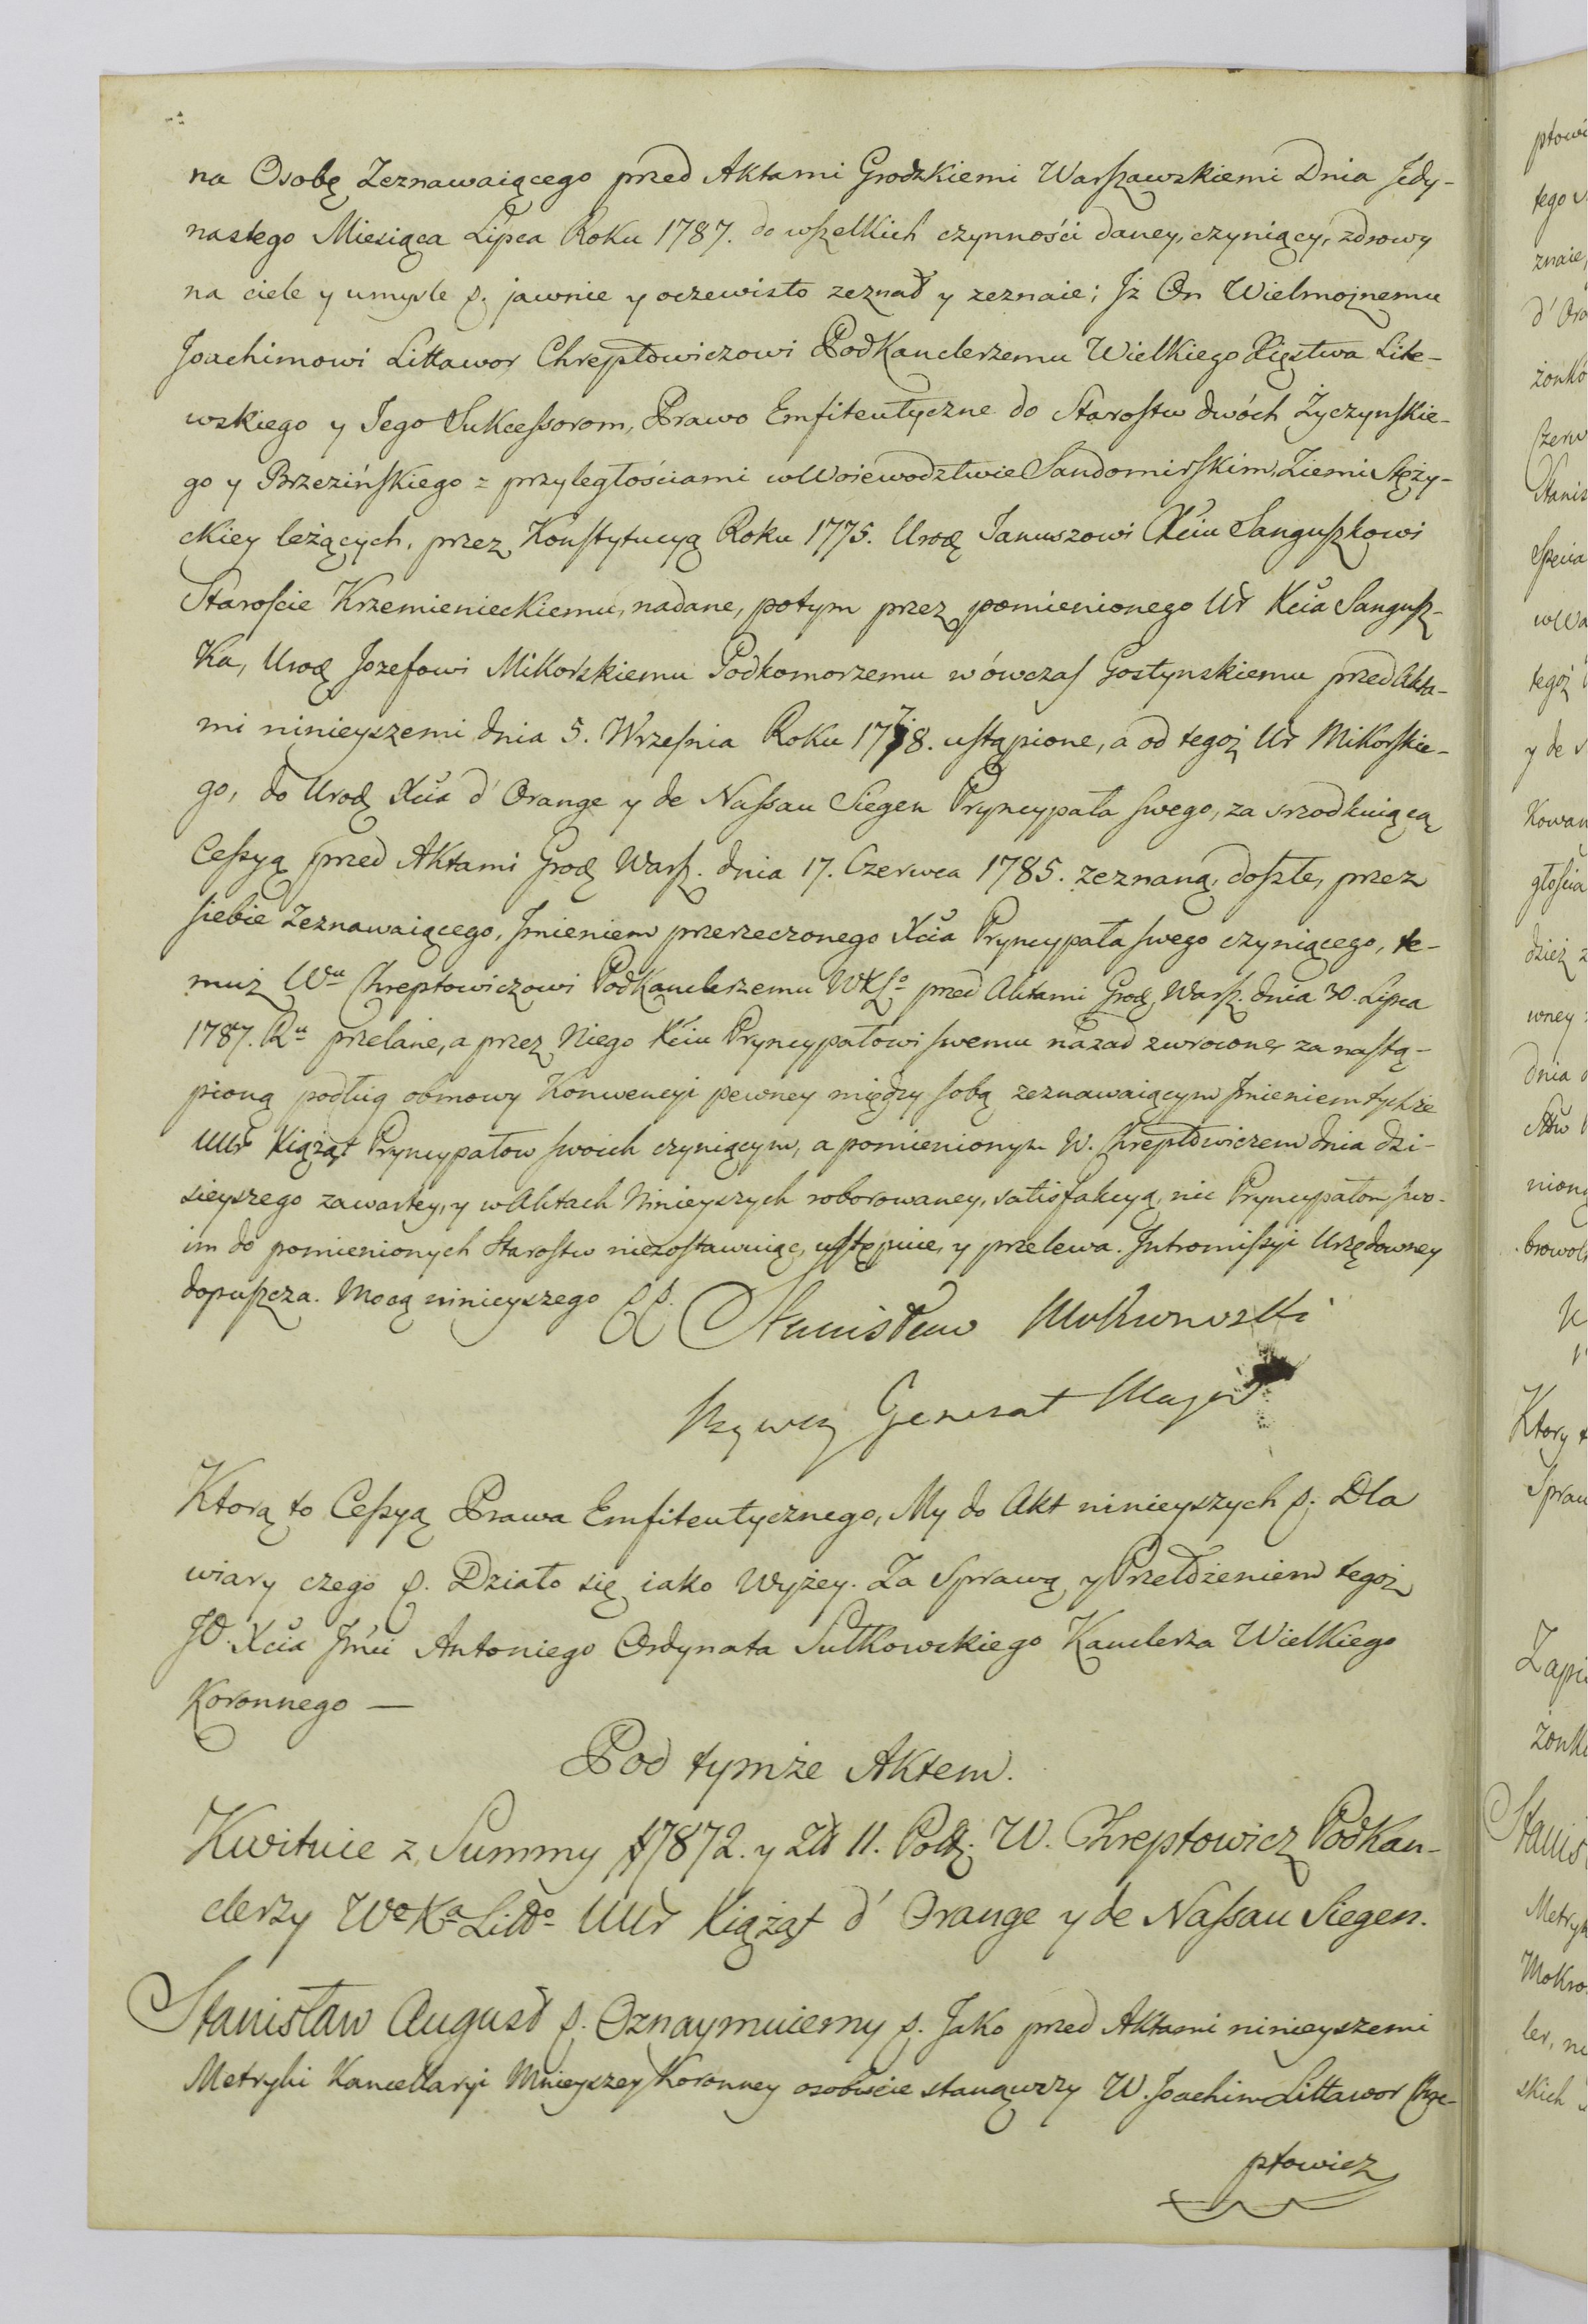 na Osobę Zeznawaiącego przed Aktami Grodzkiemi Warszawskiemi Dnia Jedy-
nastego Miesiąca Lipca Roku 1787. do wszelkich czynności daney, czyniący, zdrowy
na ciele y umysle p. jawnie y oczewisto zeznał y zeznaie; Jż On Wielmożnemu
Joachimowi Littawor Chreptowiczowi PodKanclerzemu Wielkiego Xięstwa Lite-
wskiego y Jego Sukcessorom, Prawo Emfiteutyczne do Starostw dwóch Życzynskie-
go y Brzezińskiego z przyległościami w Woiewodztwie Sandomirskim, Ziemi Stęży-
ckiey leżących, przez Konstytucyą Roku 1775. Urod Januszowi Xciu Sanguszkowi
Staroście Krzemienieckiemu, nadane, potym przez pomienionego Ur Xcia Sangusz-
ka, Urod Jozefowi Mikorskiemu Podkomorzemu wówczas Gostynskiemu przed Akta-
mi ninieyszemi dnia 5. Wrzesnia Roku 1778. ustąpione, a od tegoż Ur Mikorskie-
go, do Urod Xcia d' Orange y de Nassau Siegen Pryncypała swego, za srzodkuiącą
Cessyą przed Aktami Grod Warsz. dnia 17. Czerwca 1785. zeznaną, doszłe, przez
siebie Zeznawaiącego, Jmieniem przerzeczonego Xcia Pryncypała swego czyniącego, te-
muż Wu Chreptowiczowi PodKanclerzemu WXLo przed Aktami Grod Warsz. dnia 30. Lipca
1787. Ru przelane, a przez Niego Xciu Pryncypałowi swemu nazad zwrocone, za nastą-
pioną podług obmowy Konwencyi pewney między sobą zeznawaiącym Jmieniem tychże
UUr Xiążąt Pryncypałow swoich czyniącym, a pomienionym W. Chreptowiczem dnia dzi-
sieyszego zawartey, y w Aktach Ninieyszych roborowaney, satisfakcyą, nic Pryncypałom swo-
im do pomienionych Starostw niezostawuiąc, ustępuie, y przelewa. Jntromissyi Urzędowney
dopuszcza. Mocą ninieyszego p.p. Stanisław Mokronoski
Bywszy Generał Major
Ktorą to Cessyą Prawa Emfiteutycznego, My do Akt ninieyszych p. Dla
wiary czego p. Działo się iako Wyżey. Za Sprawą y Przełożeniem tegoż
JO. Xcia Jmci Antoniego Ordynata Sułkowskiego Kanclerza Wielkiego
Koronnego —
Pod tymże Aktem.
Kwituie z Summy #7872. y Zł 11. Pol. W. Chreptowicz PodKan-
clerzy Wo Xa Litto UUr Xiążąt d' Orange y de Nassau Siegen.
Stanisław August p. Oznaymuiemy p. Jako przed Aktami ninieyszemi
Metryki Kancellaryi Mnieyszey Koronney osobiście stanąwszy W. Joachim Littawor Chre-
ptowicz